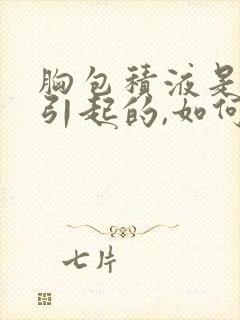 胸包積液是
引起的,如何
七片